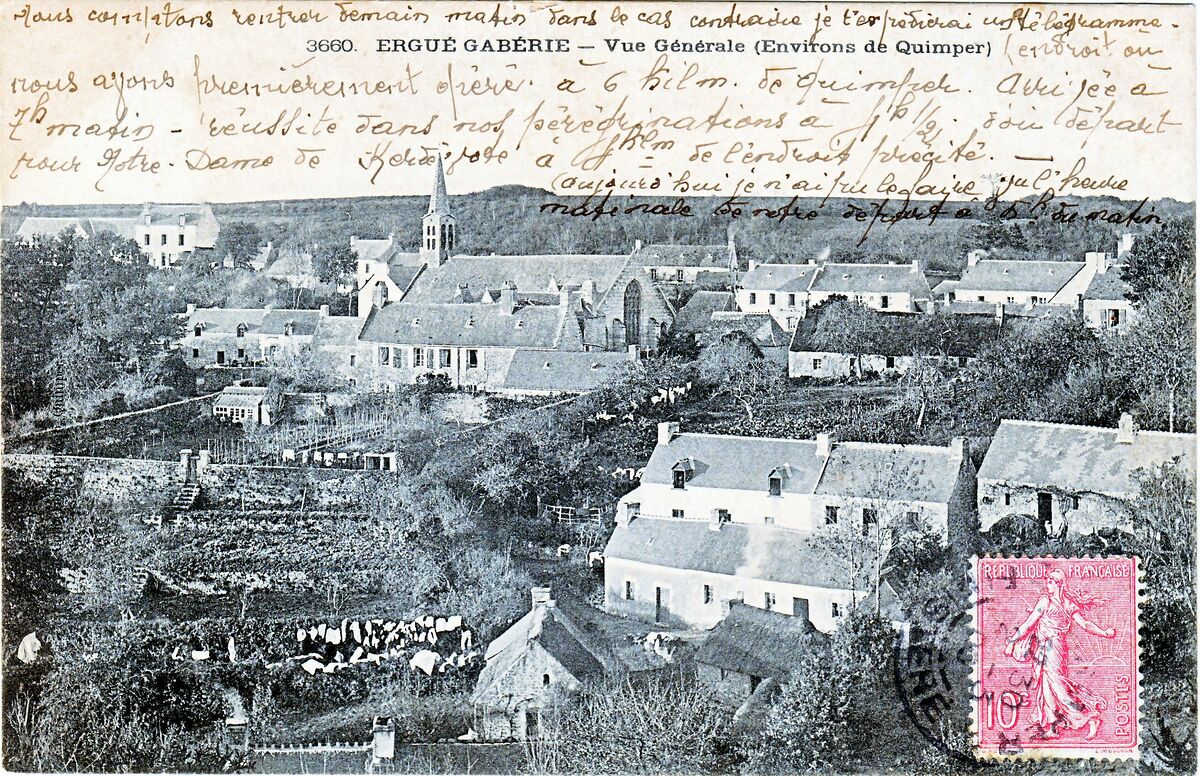 Nous comptons rentrer demain matin dans le cas contraire je t'expédierai un télégramme.
3660. ERGUÉ GABÉRIE — Vue Générale (Environs de Quimper)
(endroit où
nous ayons premièrement opéré. à 6 kilm. de Quimper. Arrivée à
7h matin - réussite dans nos pérégrinations à 9h 1/2. d'où départ
pour Notre-Dame de à klm de l'endroit précité. —
(aujourd'hui je n'ai pu le faire vu l'heure
matinale de notre départ à 6h du matin
RÉPUBLIQUE FRANÇAISE
10c
POSTES
L. MOUCHON